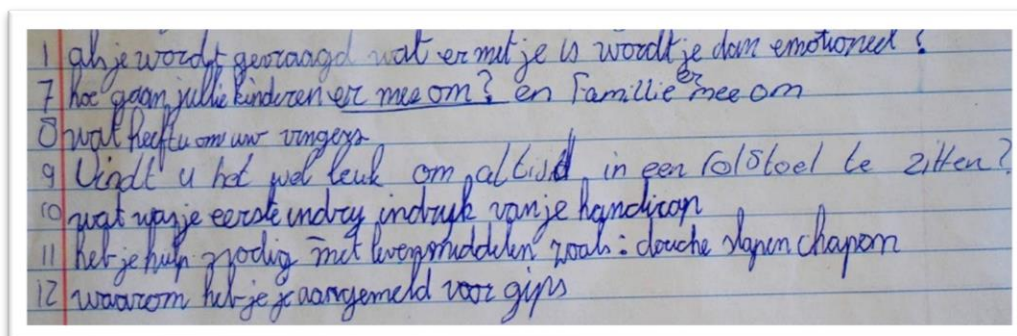 1 als je wordt gevraagd wat er met je is wordt je dan emotioneel?
7 hoe gaan jullie kinderen er mee om? en Famillie er mee om
8 wat heeft u om uw vingers
9 Vindt u het wel leuk om altijd in een rolstoel te zitten?
10 wat was je eerste indruk van je handicap
11 heb je hulp nodig met levensmiddelen zoals: douche slapen
12 waarom heb je je aangemeld voor gips